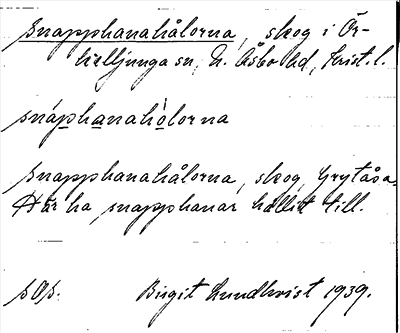 Snapphanahålorna, skog i Ör-
kelljunga sn, N. Åsbo hd, Krist. l.
snáphanahò̀lorna
Snapphanahålorna, skog, Grytåsa.
Där ha snapphanar hållit till.
Birgit Lundkvist 1939.